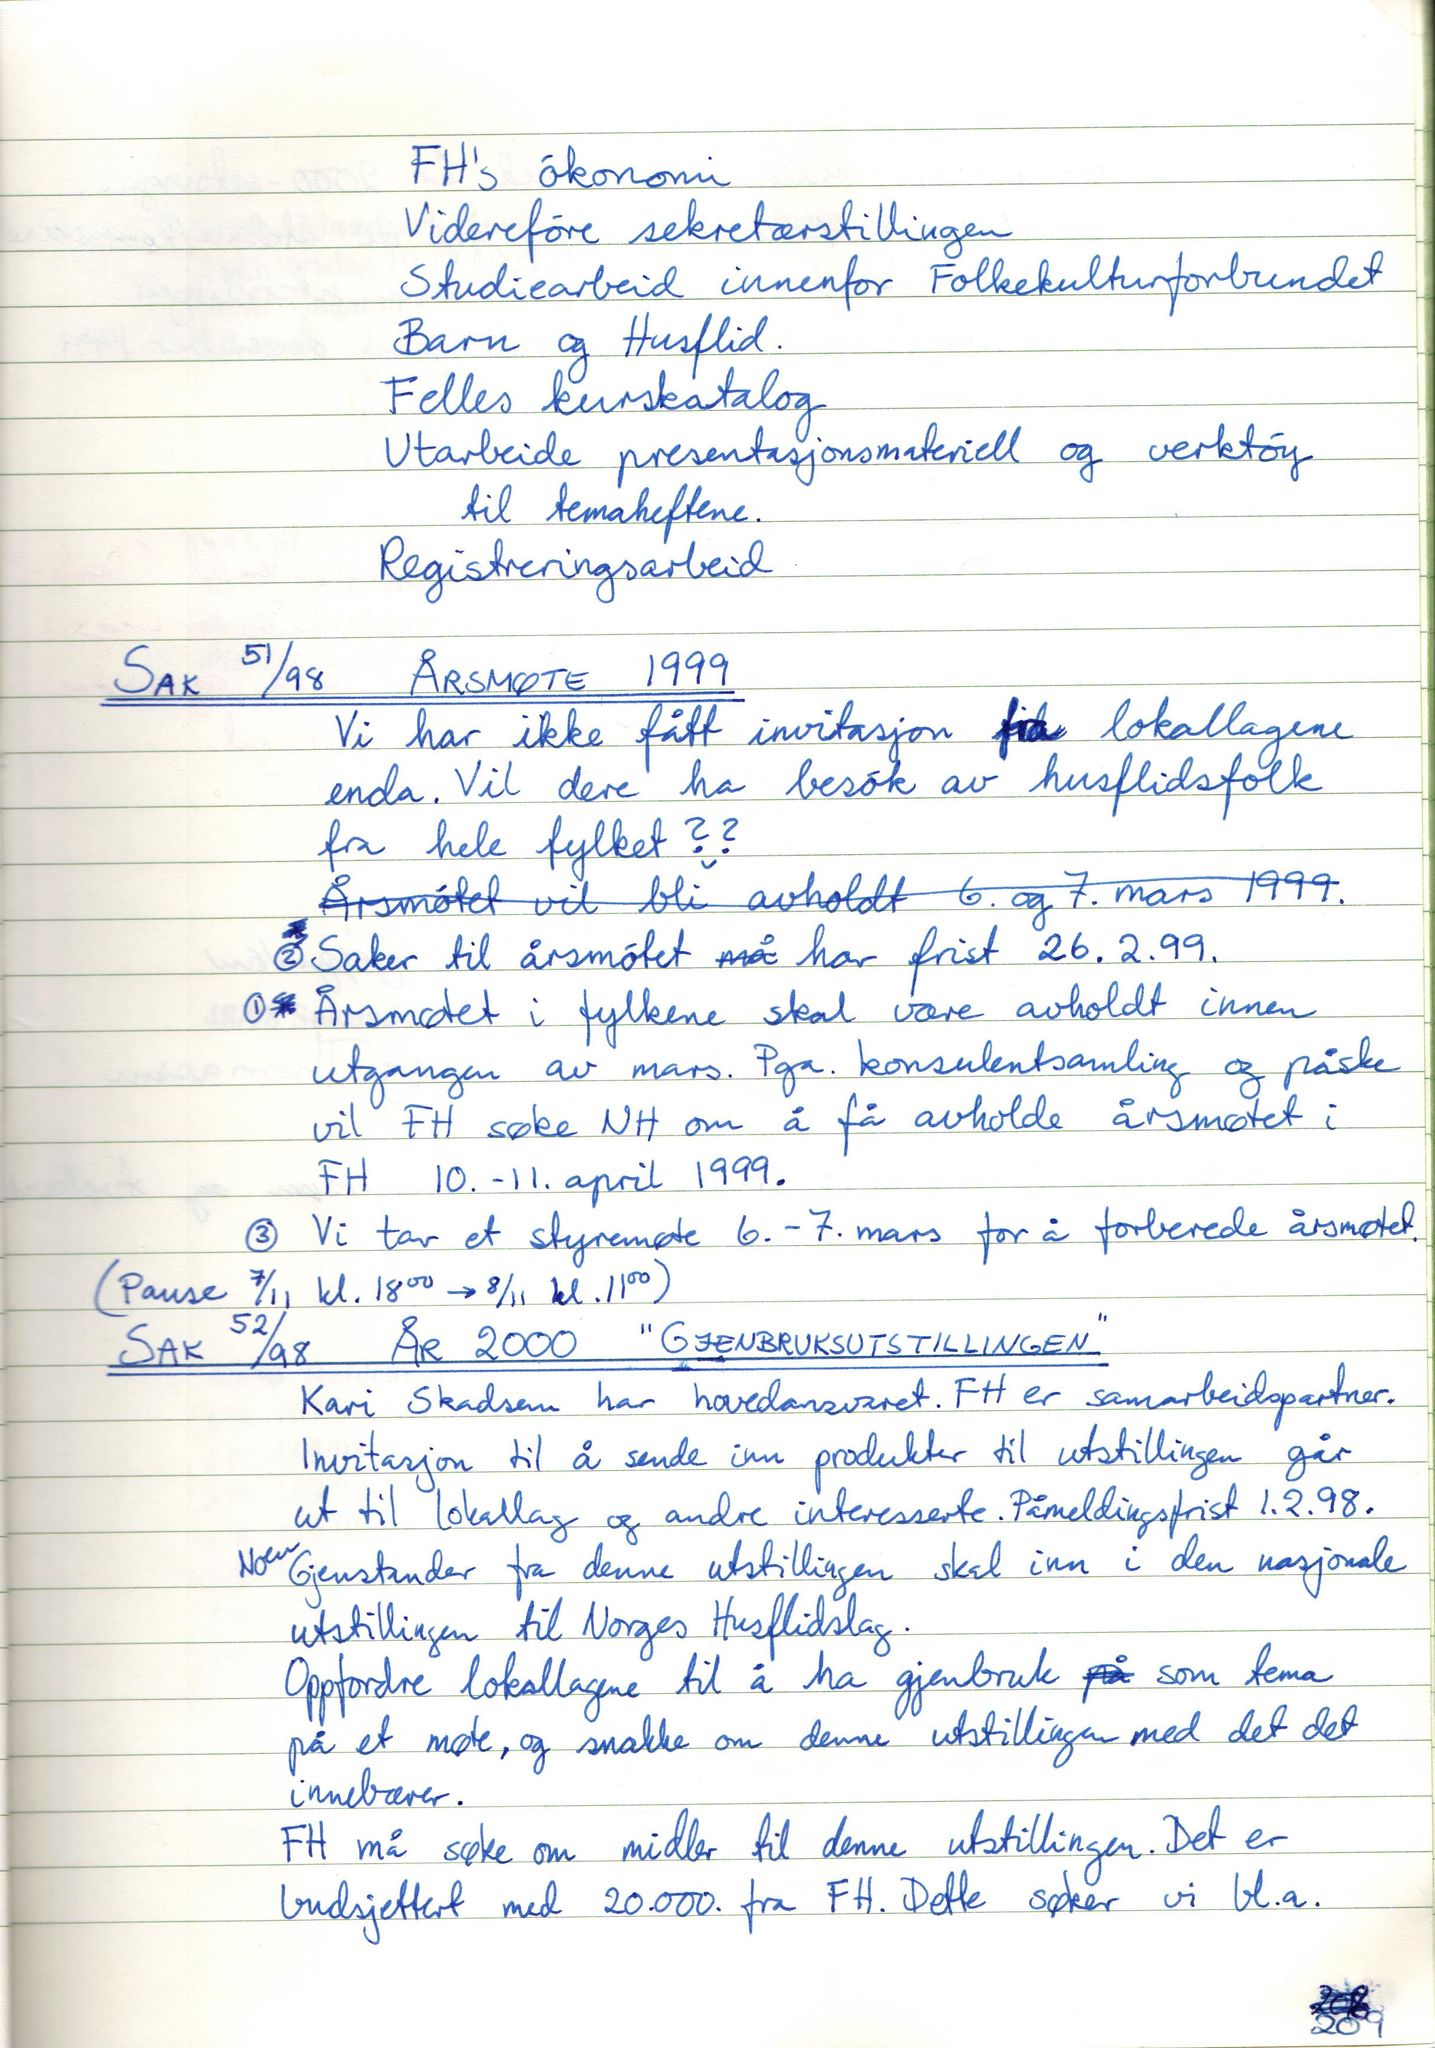 FH's ökonomi
Videreföre sekretærstillingen
Studiearbeid innenfor Folkekulturforbundet
Barn og Husflid.
Felles kurskatalog
Utarbeide presentasjonsmateriell og verktöy
til temaheftene.
Registreringsarbeid
SAK 51/98 ÅRSMØTE 1999
Vi har ikke fått invitasjon fra lokallagene
enda. Vil dere ha besök av husflidsfolk
fra hele fylket??
Årsmötet vil bli avholdt 6. og 7. mars 1999.
② Saker til årsmötet må har frist 26.2.99.
① Årsmøtet i fylkene skal være avholdt innen
utgangen av mars. Pga. konsulentsamling og påske
vil FH søke NH om å få avholde årsmøtet i
FH 10.-11. april 1999.
③ Vi tar et styremøte 6.-7. mars for å forberede årsmøtet.
(Pause 7/11 kl. 18⁰⁰ → 8/11 kl. 11⁰⁰)
SAK 52/98 ÅR 2000 "GJENBRUKSUTSTILLINGEN"
Kari Skadsem har hovedansvaret. FH er samarbeidspartner.
Invitasjon til å sende inn produkter til utstillingen går
ut til lokallag og andre interesserte. Påmeldingsfrist 1.2.98.
Noen Gjenstander fra denne utstillingen skal inn i den nasjonale
utstillingen til Norges Husflidslag.
Oppfordre lokallagene til å ha gjenbruk på som tema
på et møte, og snakke om denne utstillingen med det det
innebærer.
FH må søke om midler til denne utstillingen. Det er
budsjettert med 20.000. fra FH. Dette søker vi bl.a.
209